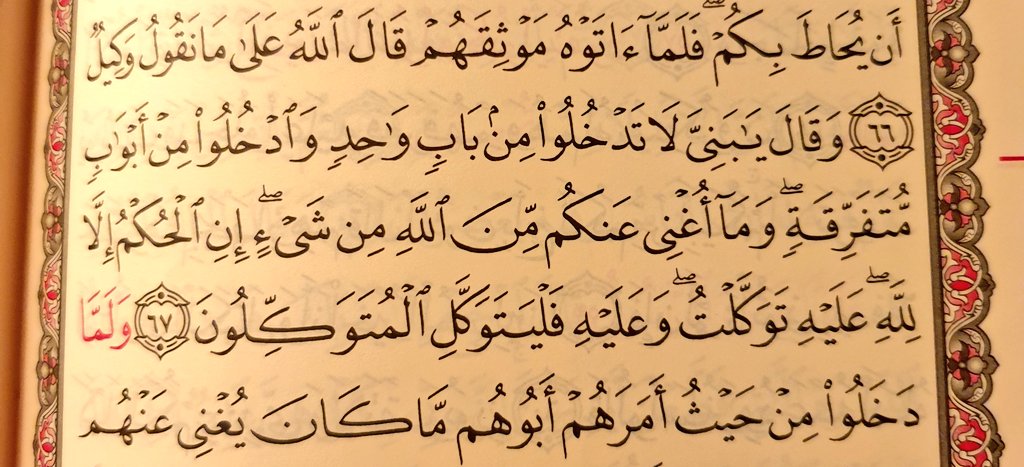 أَن يُحَاطَ بِكُمْ ۖ فَلَمَّآ ءَاتَوْهُ مَوْثِقَهُمْ قَالَ ٱللَّهُ عَلَىٰ مَا نَقُولُ وَكِيلٌ
﴿٦٦﴾ وَقَالَ يَـٰبَنِىَّ لَا تَدْخُلُوا۟ مِنۢ بَابٍ وَٰحِدٍ وَٱدْخُلُوا۟ مِنْ أَبْوَٰبٍ
مُّتَفَرِّقَةٍ ۖ وَمَآ أُغْنِى عَنكُم مِّنَ ٱللَّهِ مِن شَىْءٍ ۖ إِنِ ٱلْحُكْمُ إِلَّا
لِلَّهِ ۖ عَلَيْهِ تَوَكَّلْتُ ۖ وَعَلَيْهِ فَلْيَتَوَكَّلِ ٱلْمُتَوَكِّلُونَ ﴿٦٧﴾ وَلَمَّا
دَخَلُوا۟ مِنْ حَيْثُ أَمَرَهُمْ أَبُوهُم مَّا كَانَ يُغْنِى عَنْهُم